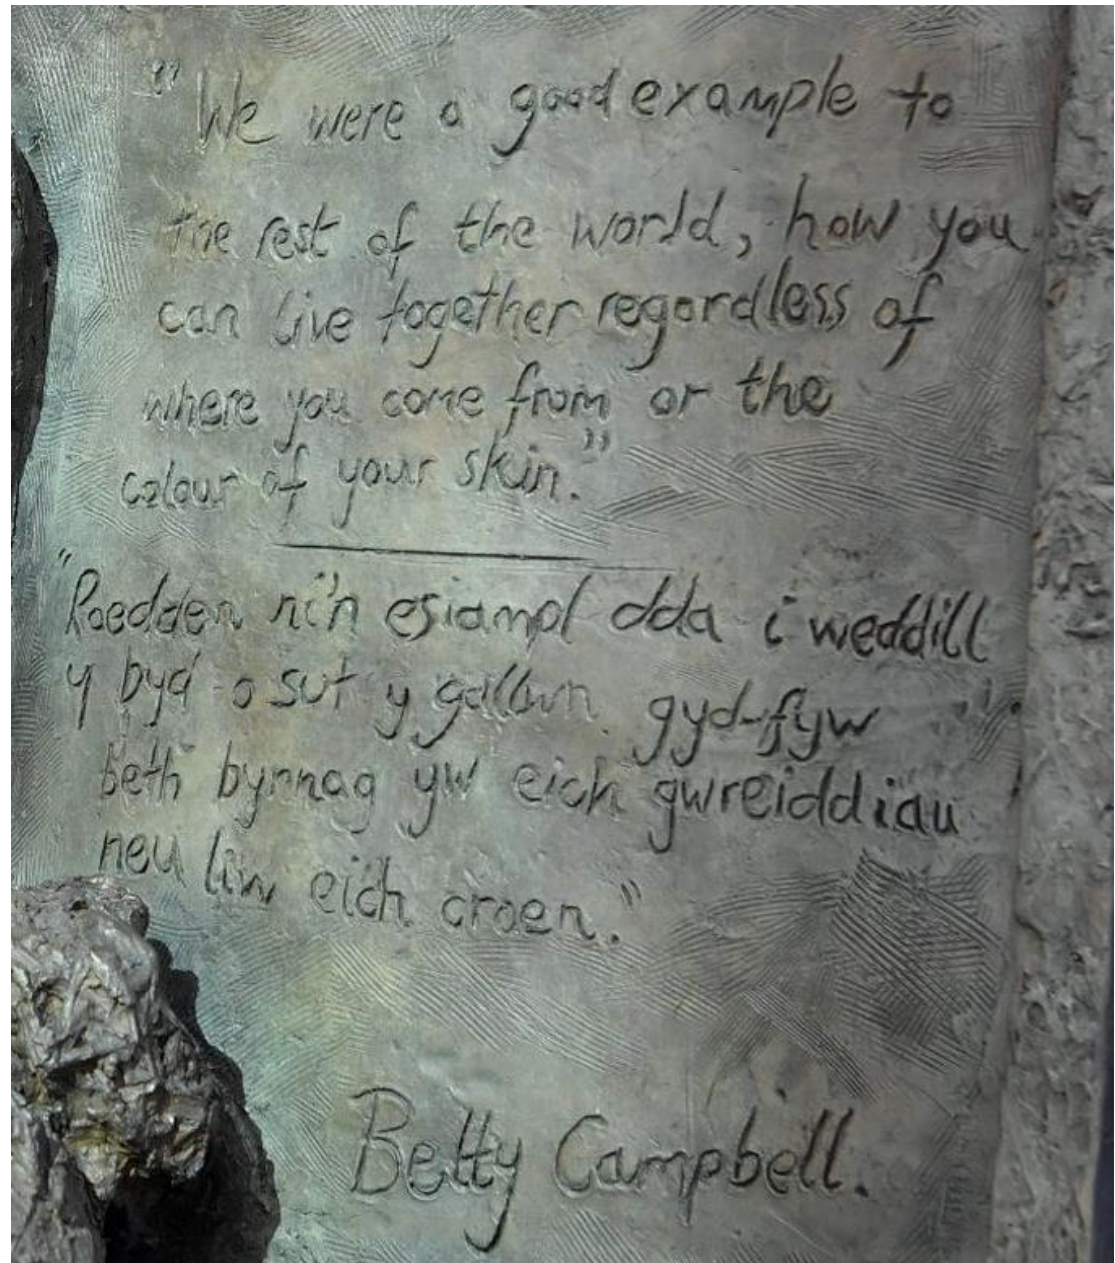 "We were a good example to
the rest of the world, how you
can live together regardless of
where you come from or the
colour of your skin."
"Roedden ni'n esiampl dda i weddill
y byd o sut y gallwn gyd-fyw
beth bynnag yw eich gwreiddiau
neu liw eich croen."
Betty Campbell.